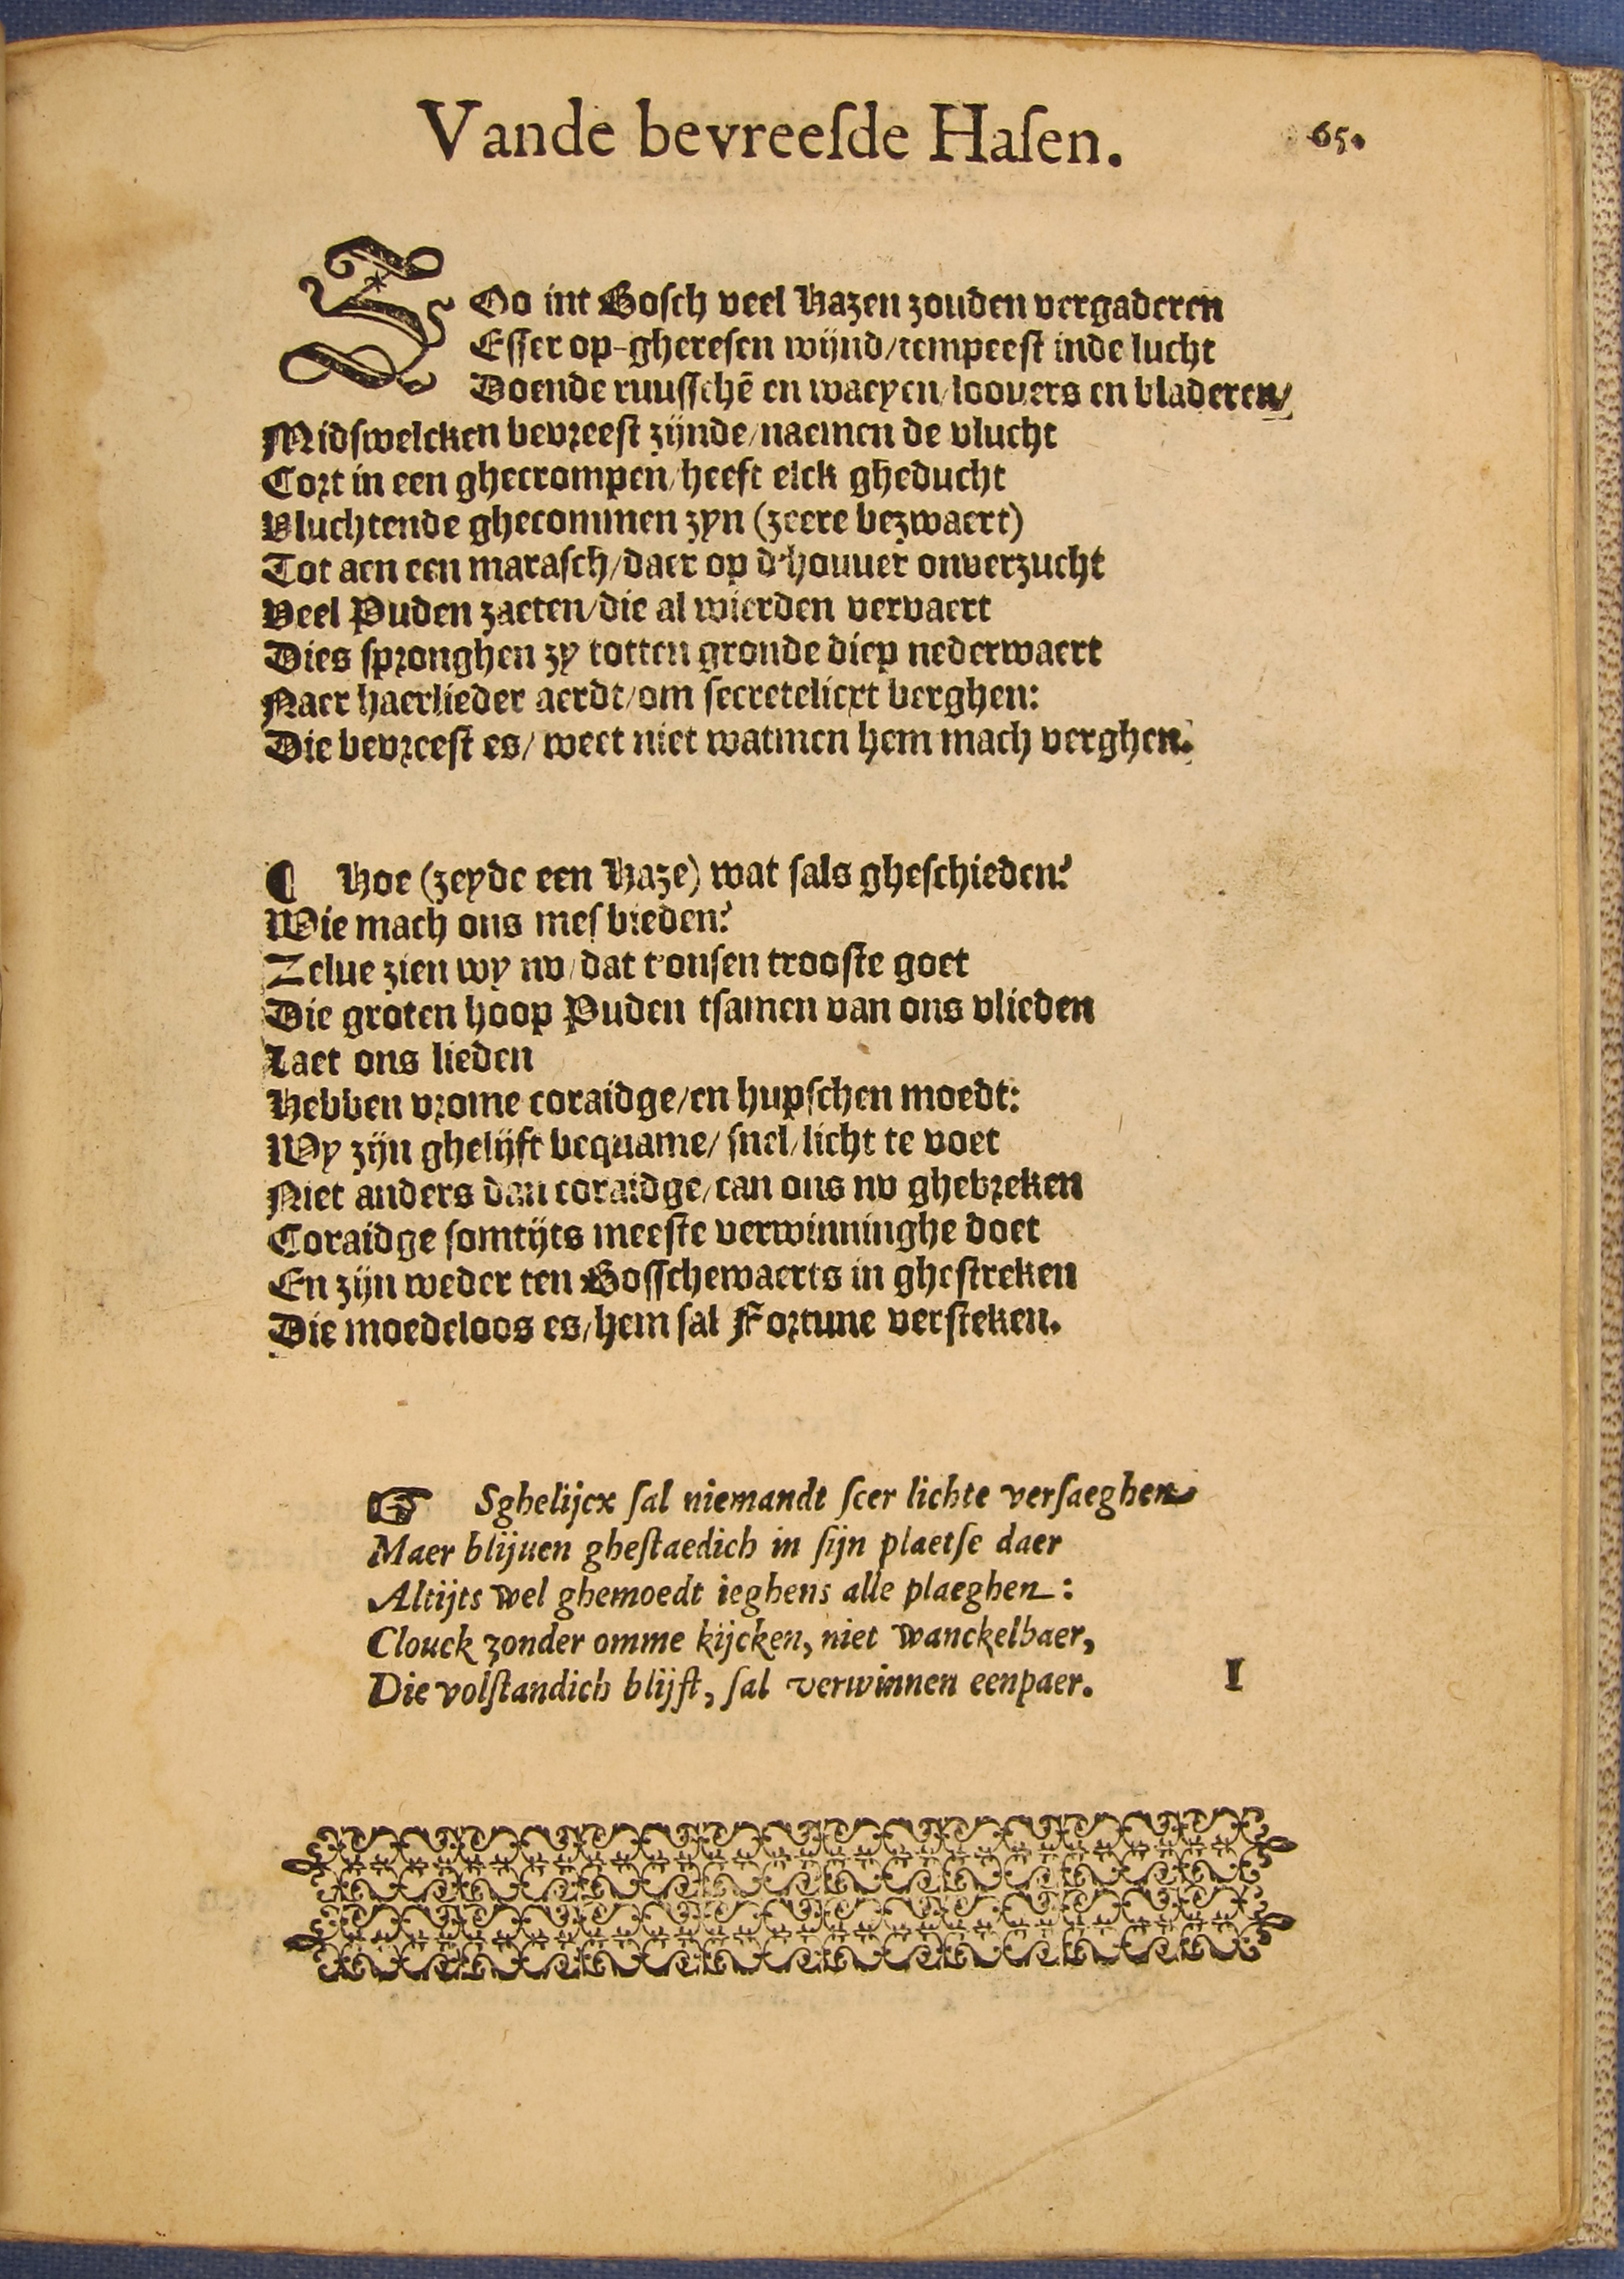 Vande bevreeſde Haſen. 65.
ZOo int Boſch veel Hazen zouden vergaderen
Eſſer op-ghereſen wijnd/tempeeſt inde lucht
Doende ruuſſchē en waeyen/loovers en bladeren/
Midſwelcken bevreeſt zijnde/naemen de vlucht
Cort in een ghecrompen/heeft elck gheducht
Vluchtende ghecommen zyn (zeere bezwaert)
Tot aen een maraſch/daer op d'houuer onverzucht
Veel Puden zaeten/die al wierden vervaert
Dies ſpronghen zy totten gronde diep nederwaert
Naer haerlieder aerdt/om ſecreteliext berghen:
Die bevreeſt es/ weet niet watmen hem mach verghen.
¶ Hoe (zeyde een Haze) wat ſals gheſchieden?
Wie mach ons meſbieden?
Zelue zien wy nv/dat t'onſen trooſte goet
Die groten hoop Puden tſamen van ons vlieden
Laet ons lieden
Hebben vrome coraidge/en hupſchen moedt:
Wy zijn ghelijft bequame/ ſnel/licht te voet
Niet anders dan coraidge/can ons nv ghebreken
Coraidge ſomtijts meeſte verwinninghe doet
En zijn weder ten Boſſchewaerts in gheſtreken
Die moedeloos es/hem ſal Fortune verſteken.
☞ Sghelijcx ſal niemandt ſeer lichte verſaeghen
Maer blijuen gheſtaedich in ſijn plaetſe daer
Altijts wel ghemoedt ieghens alle plaeghen:
Clouck zonder omme kijcken, niet wanckelbaer,
Die volſtandich blijft, ſal verwinnen eenpaer. I